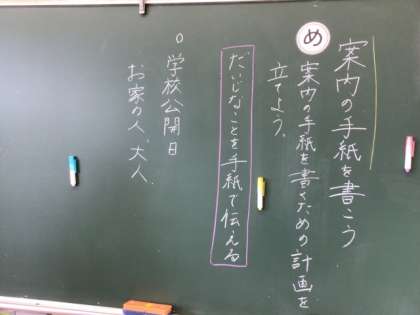 案内の手紙を書こう
め
案内の手紙を書くための計画を
立てよう。
だいじなことを手紙で伝える
○学校公開日
お家の人、大人、